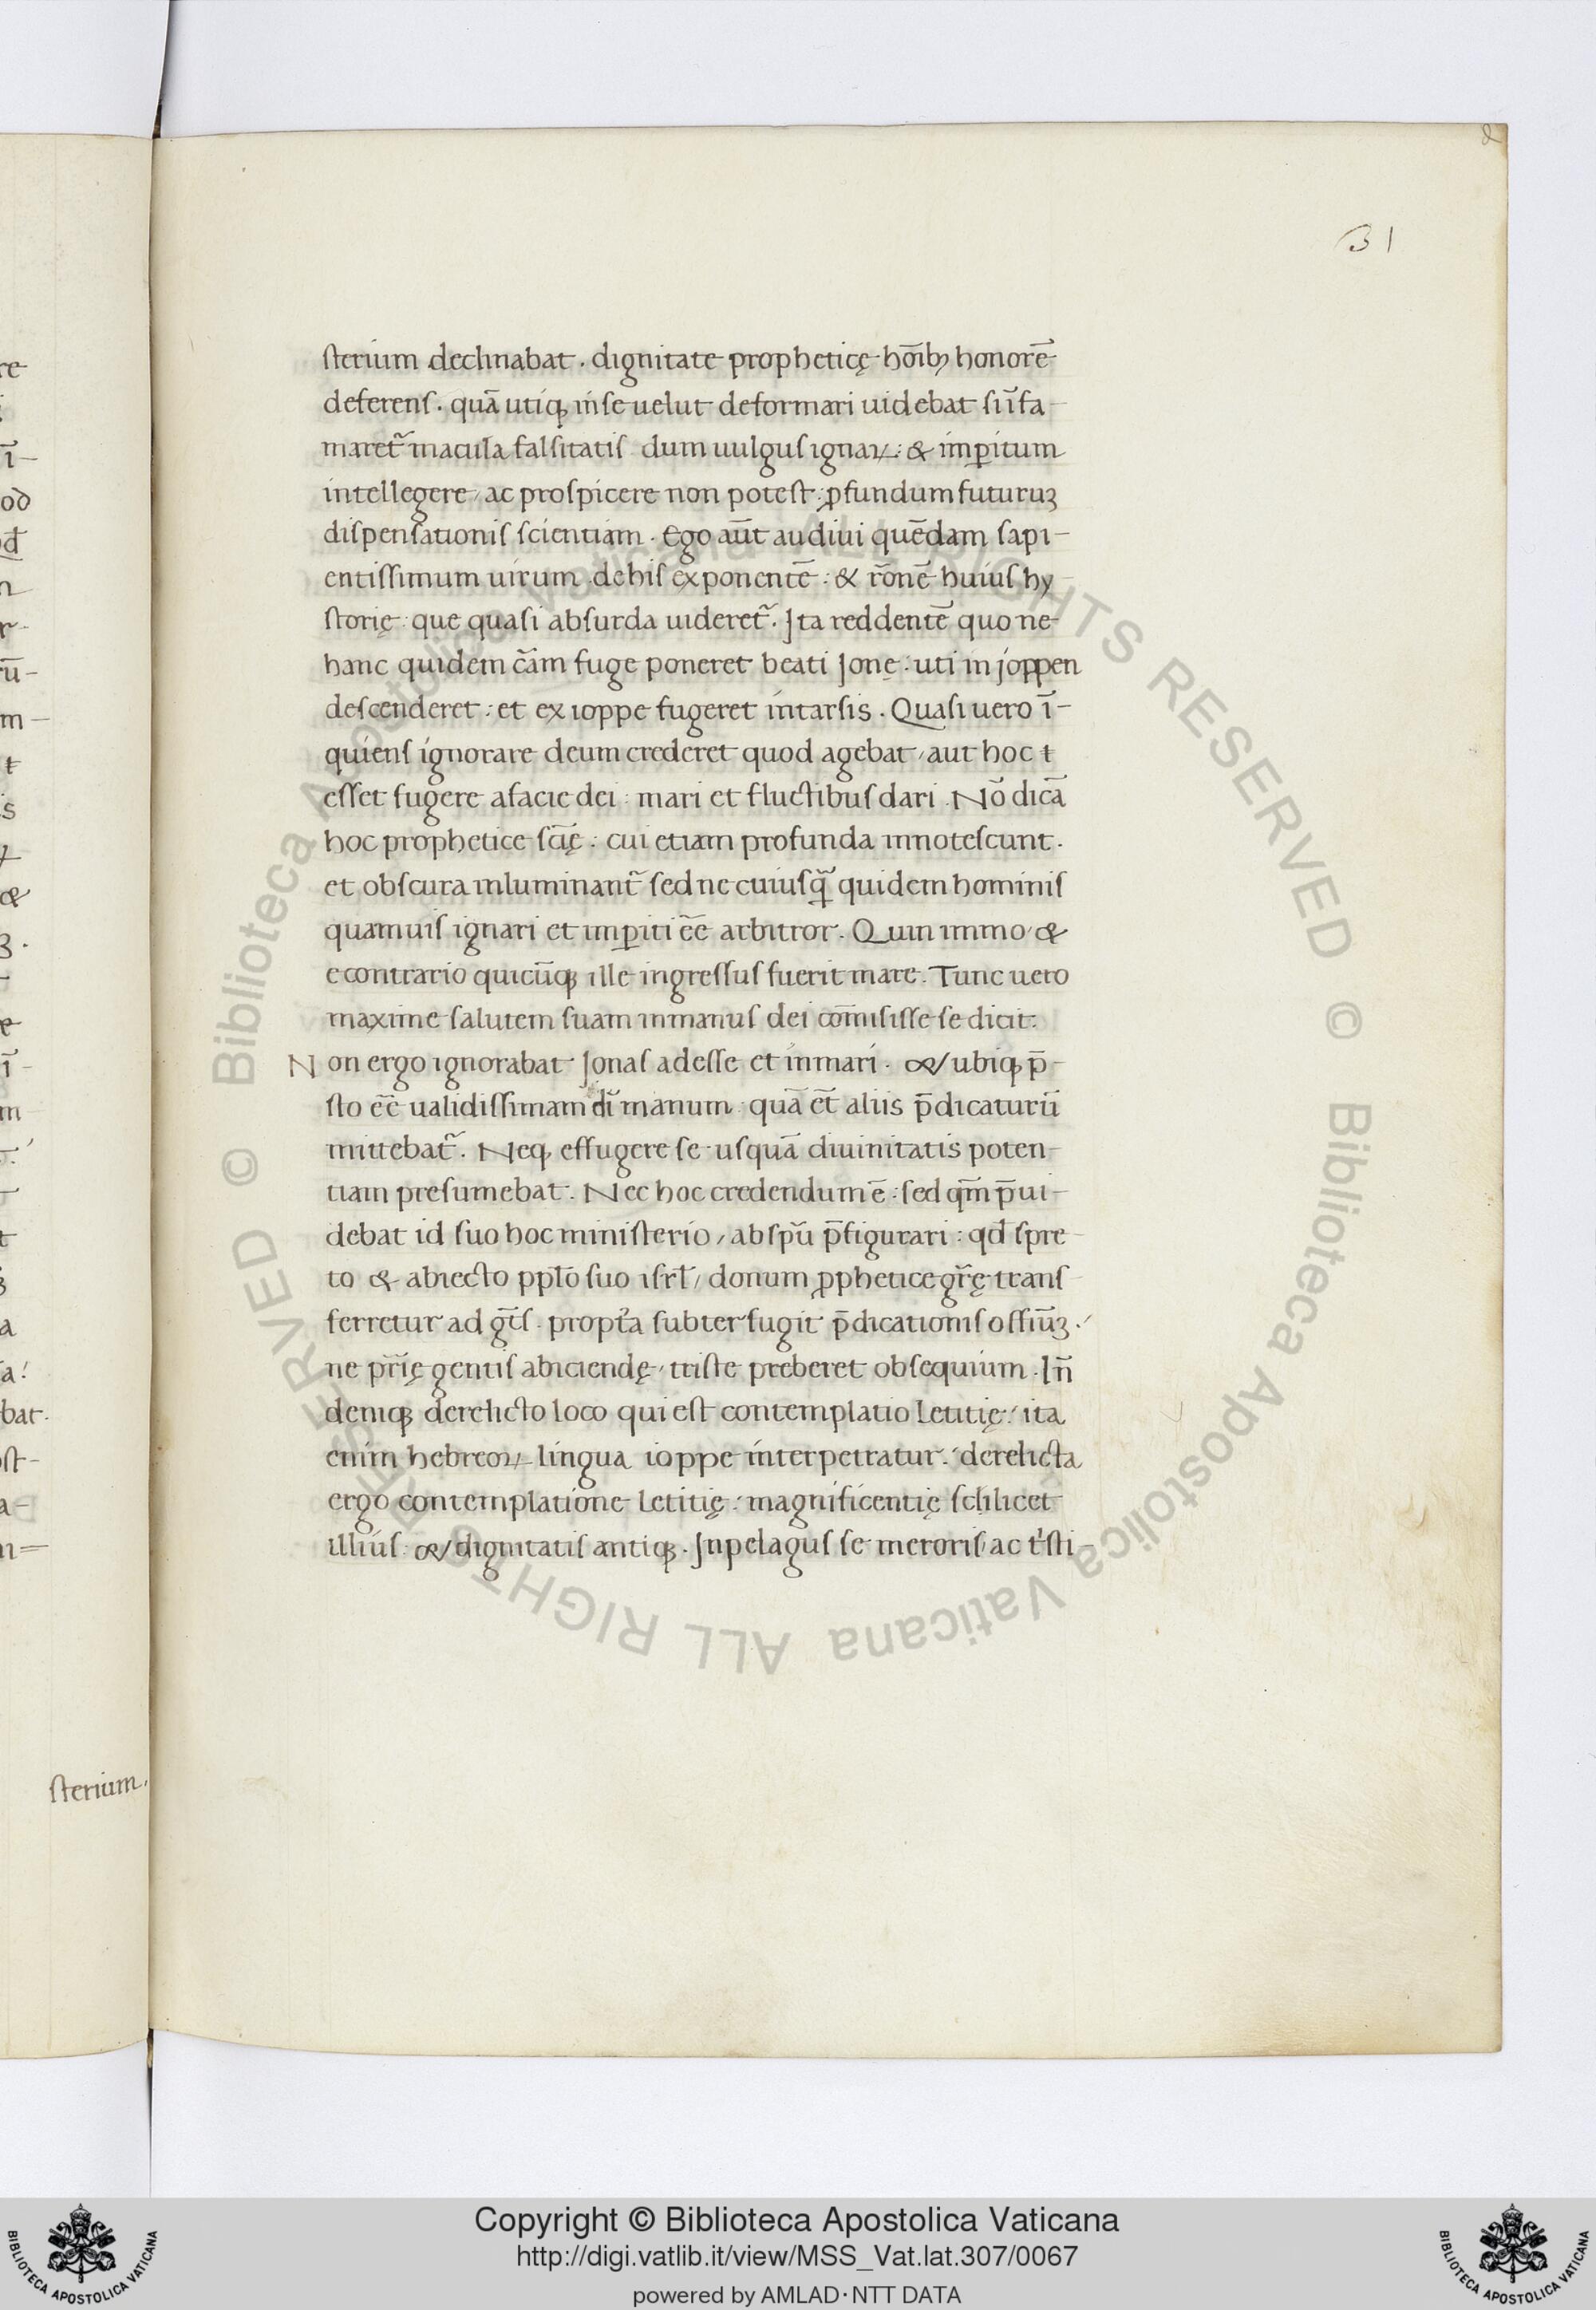 &
31
re
ī-
od
m-
sterium.
sterium declinabat . dignitate propheticę hōīb; honorē
deferens . quā utiq; in se uelut deformari uidebat si īfa-
maret᷑ macula falsitatis dum uulgus ignaꝝ : & imꝑitum
intellegere, ac prospicere non potest : ꝓfundum futuruꝫ
dispensationis scientiam . Ego aūt audiui quēdam sapi-
entissimum uirum . de his exponentē : & r̄onē huius hy
storię : que quasi absurda uideret᷑ . Ita reddentē quo ne
hanc quidem c̄am fuge poneret beati Ionę : uti in joppen
descenderet : et ex ioppe fugeret in tarsis . Quasi uero ī-
quiens ignorare deum crederet quod agebat, aut hoc ł
esset fugere a facie dei : mari et fluctibus dari . Nō dicā
hoc prophetice scīę : cui etiam profunda innotescunt .
et obscura inluminant᷑ sed ne cuiusq̄ quidem hominis
quamuis ignari et imꝑiti ēē arbitror . Quin immo, &
e contrario quicūq; ille ingressus fuerit mare . Tunc uero
maxime salutem suam in manus dei com̄isisse se dicit .
Non ergo ignorabat Ionas adesse et in mari . & ubiq; p̄-
sto ēē ualidissimam dī manum . quā et̄ aliis p̄dicaturū
mittebat᷑ . Neq; effugere se usquā diuinitatis poten-
tiam presumebat . Nec hoc credendum ē : sed qm̄ p̄ui-
debat id suo hoc ministerio, ab sp̄u p̄figurari : qđ spre-
to & abiecto pplō suo isrł, donum ꝓphetice gr̄ę trans
ferretur ad gt̄s . propt̄a subterfugit p̄dicationis offiūꝫ .
ne pr̄ię gentis abiciendę, triste preberet obsequium . In̄
deniq; derelicto loco qui est contemplatio letitię : ita
enim hebreoꝝ lingua ioppe interpetratur . derelicta
ergo contemplatione letitię : magnificentię scilicet
illius : & dignitatis antiq; . In pelagus se meroris, ac tⁱsti-
Copyright © Biblioteca Apostolica Vaticana
http://digi.vatlib.it/view/MSS_Vat.lat.307/0067
powered by AMLAD·NTT DATA
BIBLIOTECA APOSTOLICA VATICANA
BIBLIOTECA APOSTOLICA VATICANA
© Biblioteca Apostolica Vaticana ALL RIGHTS RESERVED © Biblioteca Apostolica Vaticana ALL RIGHTS RESERVED